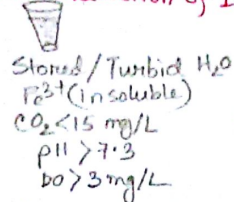 Stored/Turbid H₂O
Fe³⁺(insoluble)
CO₂<15 mg/L
pH >7.3
DO>3mg/L